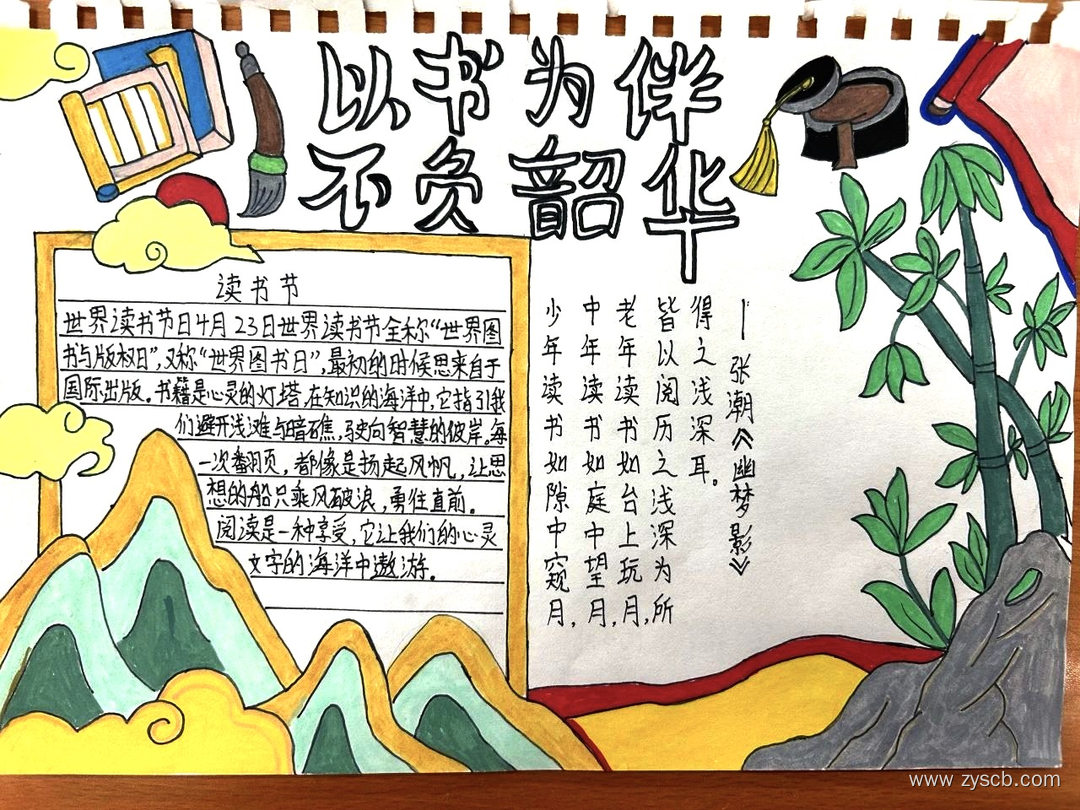 以书为伴
不负韶华
读书节
世界读书节日4月23日世界读书节全称“世界图
书与版权日”,又称“世界图书日”,最初的时候思来自于
国际出版。书籍是心灵的灯塔,在知识的海洋中,它指引我
们避开浅滩与暗礁,驶向智慧的彼岸。每
一次翻页,都像是扬起风帆,让思
想的船只乘风破浪,勇住直前。
阅读是一种享受,它让我们的心灵
文字的海洋中遨游。
少年读书如隙中窥月,
中年读书如庭中望月,
老年读书如台上玩月,
皆以阅历之浅深为所
得之浅深耳。
—张潮《幽梦影》
www.zyscb.com